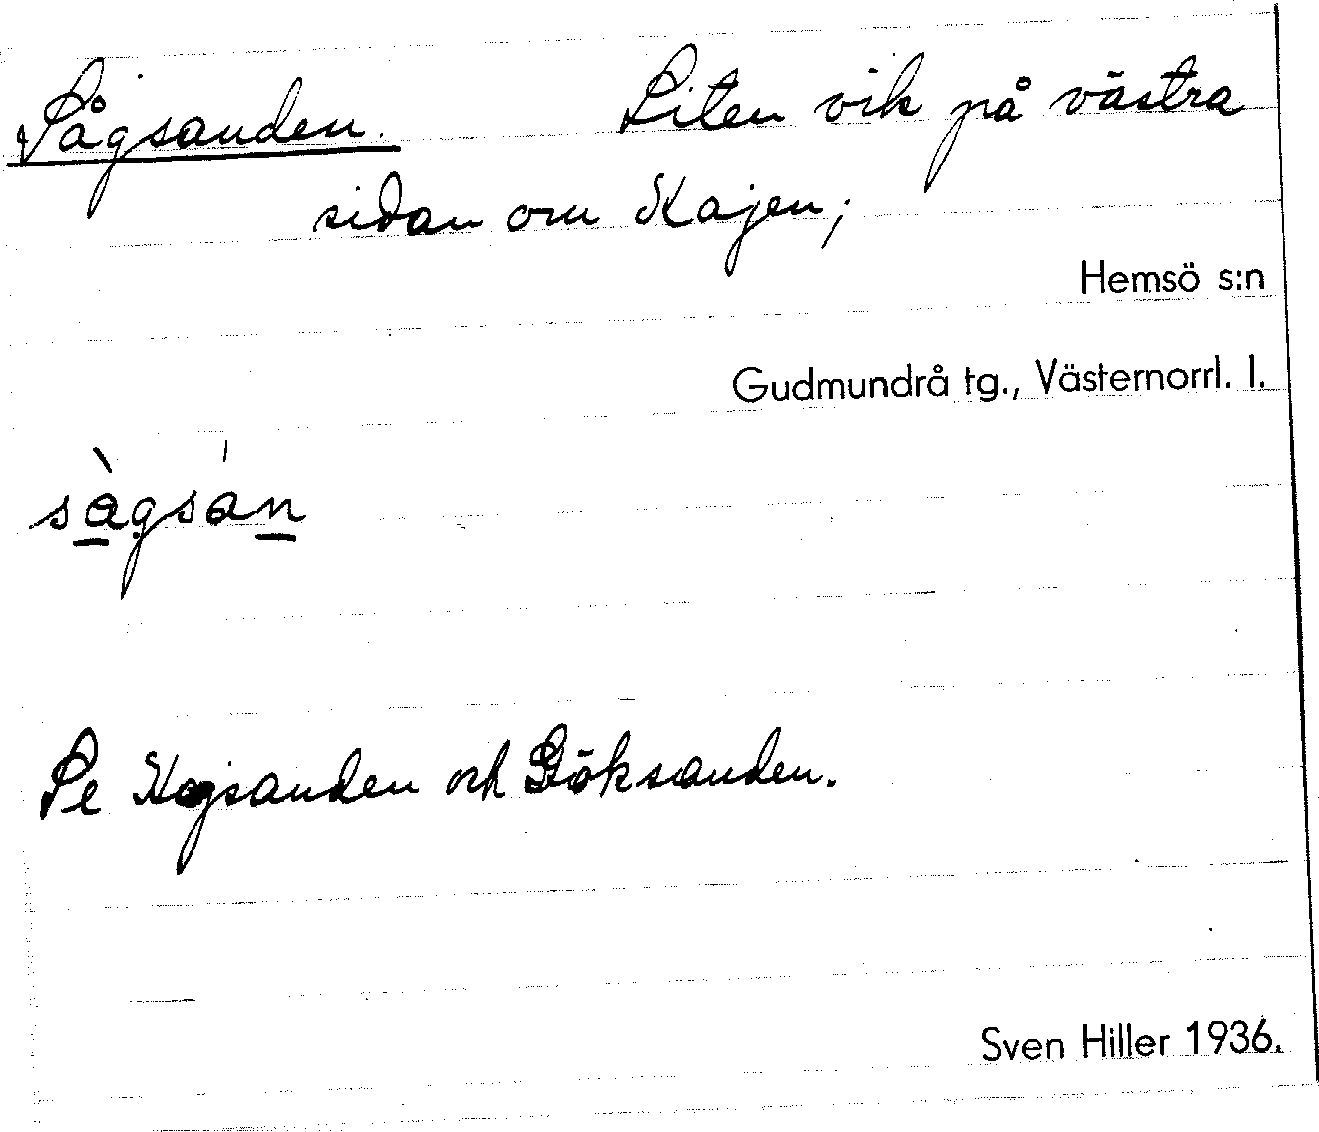 Sågsanden. Liten vik på västra
sidan om Kajen;
Hemsö s:n
Gudmundrå tg., Västernorrl. l.
sàgsán
Se Kojsanden och Göksanden.
Sven Hiller 1936.